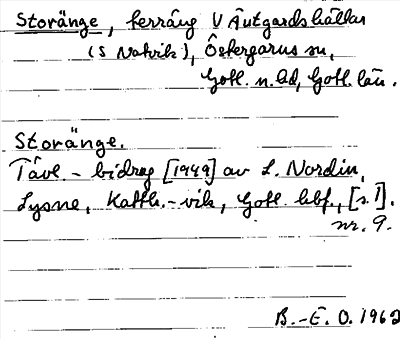 Storänge, terräng V Autgardshällar
(S Natvik), Östergarns sn,
Gotl. n. hd, Gotl. län.
Storänge.
Tävl.-bidrag [1949] av L. Nordin,
Lysne, Katth.-vik, Gotl. hbf., [s. 1].
nr. 9.
B.-E. O. 1962